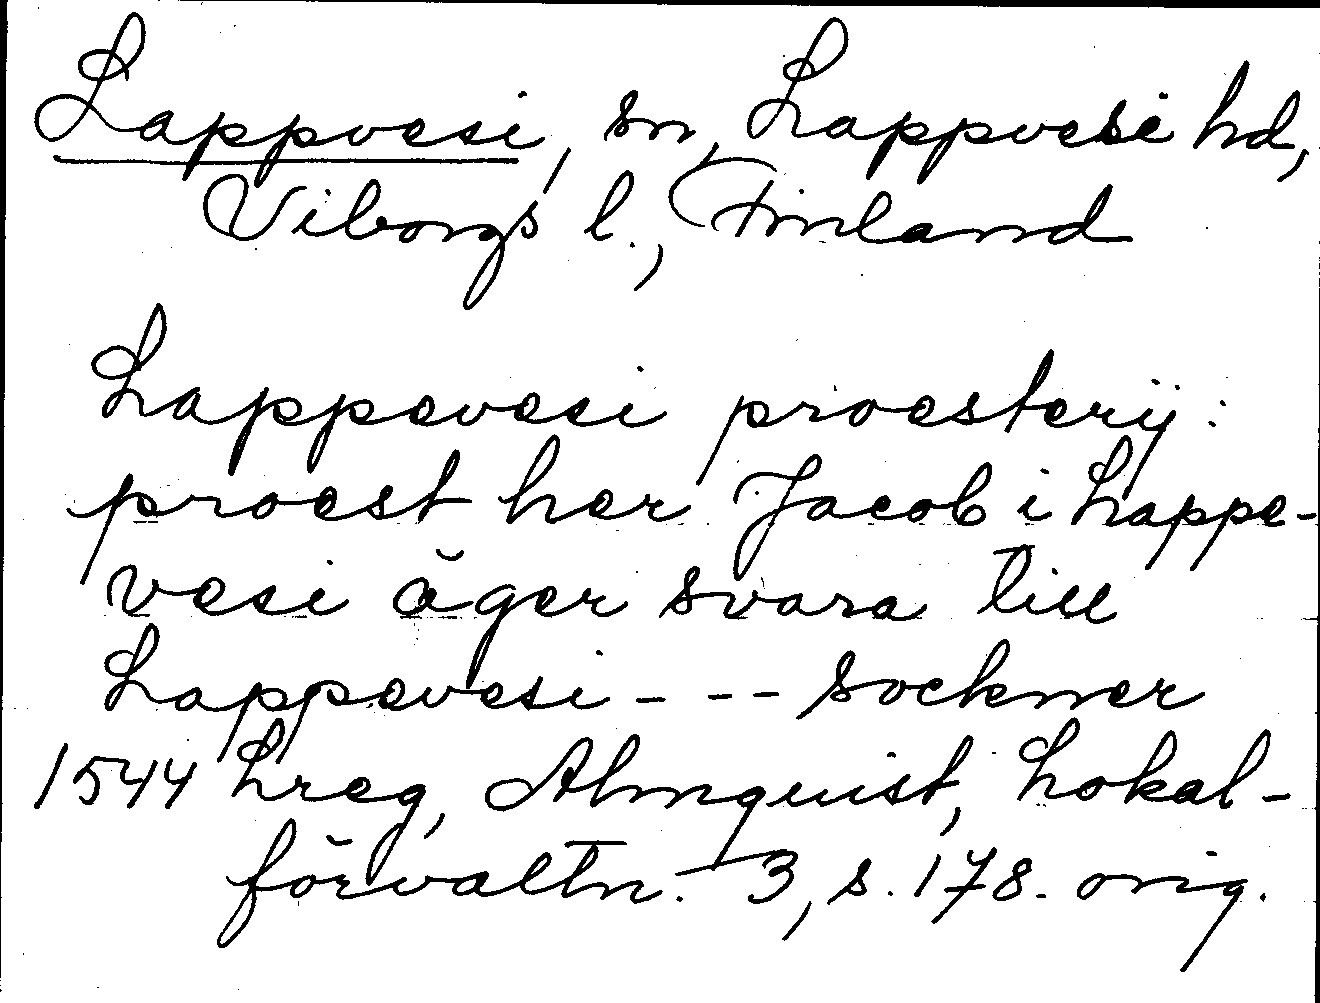 Lappvesi, sn, Lappvesi hd,
Viborgs l., Finland
Lappevesi proesterij:
proest her Jacob i Lappe-
vesi äger svara till
Lappevesi - - - sockner
1544 Lreg, Almquist, Lokal-
förvaltn. 3, s. 178. orig.